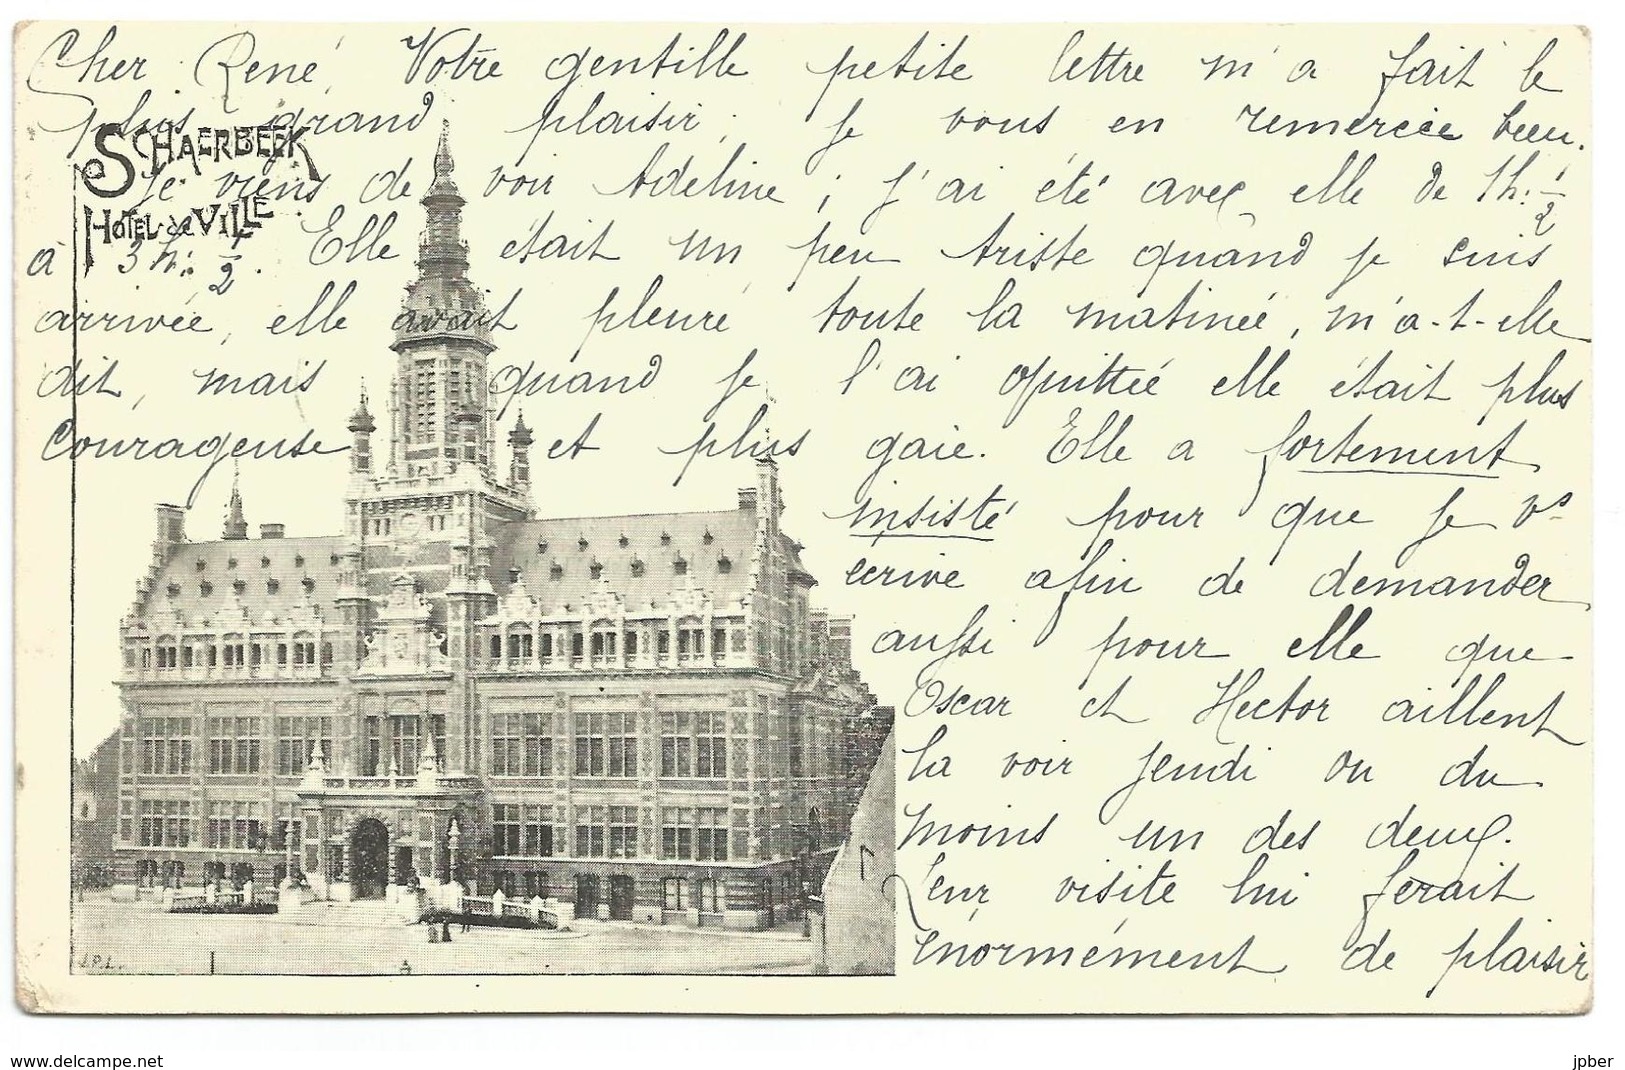 Cher René, Votre gentille petite lettre m'a fait le
plus grand plaisir; je vous en remercie bien.
SCHAERBEEK
Je viens de voir Adeline; j'ai été avec elle de 1h. 1/2
HÔTEL de VILLE
à 3h. 1/2. Elle était un peu triste quand je suis
arrivée, elle avait pleuré toute la matinée, m'a-t-elle
dit, mais quand je l'ai quittée elle était plus
courageuse et plus gaie. Elle a fortement
insisté pour que je vs
écrive afin de demander
aussi pour elle que
Oscar et Hector aillent
la voir jeudi ou du
moins un des deux.
Leur visite lui ferait
énormément de plaisir
J.P.L.
www.delcampe.net
jpber